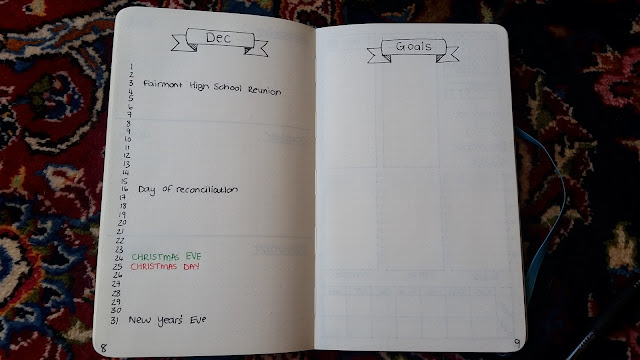 Dec
1
2
3 Fairmont High School Reunion
4
5
6
7
8
9
10
11
12
13
14
15
16 Day of reconciliation
17
18
19
20
21
22
23
24 CHRISTMAS EVE
25 CHRISTMAS DAY
26
27
28
29
30
31 New Year's Eve
8
Goals
9